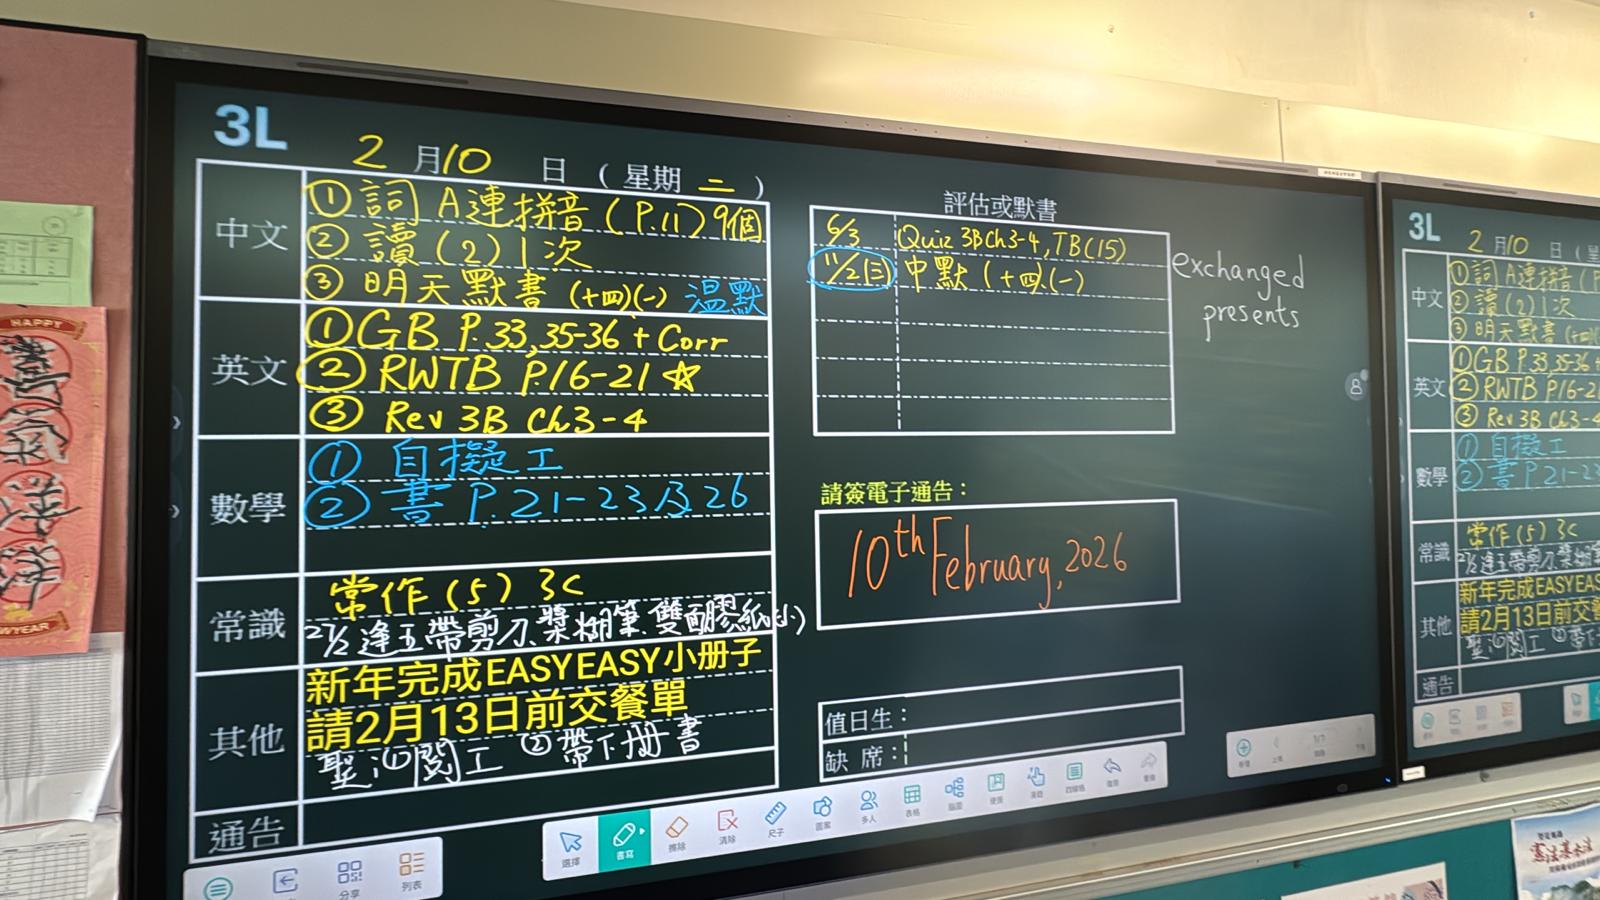 3L
2月10日(星期二)
中文
①詞 A連拼音(P.11)9個
②讀(2)1次
③明天默書(十四)(一) 溫默
英文
①GB P.33,35-36 + Corr
②RWTB P.16-21 ☆
③Rev 3B Ch3-4
數學
①自擬工
②書 P.21-23及26
常識
常作(5) 3C
27/2 逢五帶剪刀、漿糊筆、雙面膠紙(小)
其他
新年完成EASYEASY小册子
請2月13日前交餐單
聖:①閱工 ②帶下冊書
通告
評估或默書
6/3 Quiz 3B Ch3-4, TB(15)
11/2(三) 中默(十四)(一)
exchanged
presents
請簽電子通告:
10th February, 2026
值日生:
缺席:
選擇
書寫
擦除
清除
尺子
圖案
多人
表格
腦圖
分享
列表
3L
2月10日(星
中文
①詞 A連拼音(P
②讀(2)1次
③明天默書(十四)(
英文
①GB P.33,35-36
②RWTB P.16-2
③Rev 3B Ch3-4
數學
①自擬工
②書 P.21-23
常識
常作(5) 3C
27/2 逢五帶剪刀、漿糊
其他
新年完成EASYEAS
請2月13日前交餐
聖:①閱工 ②帶下
通告
HAPPY
W YEAR